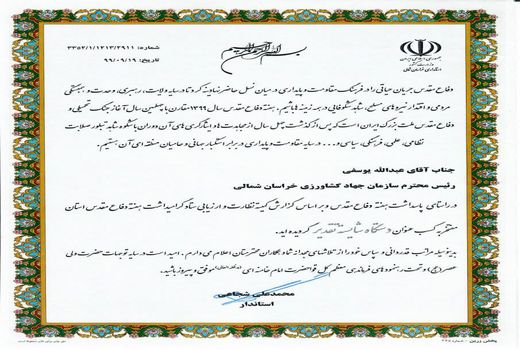 بسم الله الرحمن الرحیم
جمهوری اسلامی ایران
وزارت کشور
استانداری خراسان شمالی
شماره: ۳۳۵۲/۱/۱۲۱۳/۲۹۱۱
تاریخ: ۹۹/۰۹/۱۹
دفاع مقدس جریان حیاتی را در فرهنگ مقاومت و پایداری در میان نسل حاضر نمایند که تا در سایه ولایت، رهبری، وحدت و همبستگی
مردمی و اقتدار نیروهای مسلح، شاهد شکوفایی در همه زمینه ها باشیم. هفته دفاع مقدس سال ۱۳۹۹ مقارن با چهلمین سال آغاز جنگ تحمیلی و
دفاع مقدس ملت بزرگ ایران است که پس از گذشت چهل سال از مجاهدت ها و ایثارگری های آن دوران باشکوه شاهد تبلور صلابت
نظامی، علمی، فرهنگی، سیاسی و... در سایه مقاومت و پایداری در برابر استکبار جهانی و حامیان منطقه ای آن هستیم.
جناب آقای عبدالله یوسفی
رئیس محترم سازمان جهاد کشاورزی خراسان شمالی
در راستای پاسداشت هفته دفاع مقدس و بر اساس گزارش کمیته نظارت و ارزیابی ستاد گرامیداشت هفته دفاع مقدس استان
مفتخر به کسب عنوان دستگاه شایسته تقدیر گردیده اید.
بدینوسیله مراتب قدردانی و سپاس خود را از تلاشهای مجدانه شما و همکاران محترمتان اعلام می دارم. امید است در سایه توجهات حضرت ولی
عصر (عج) و تحت رهنمودهای فرماندهی معظم کل قوا حضرت امام خامنه ای موفق و پیروز باشید.
محمدعلی شجاعی
استاندار